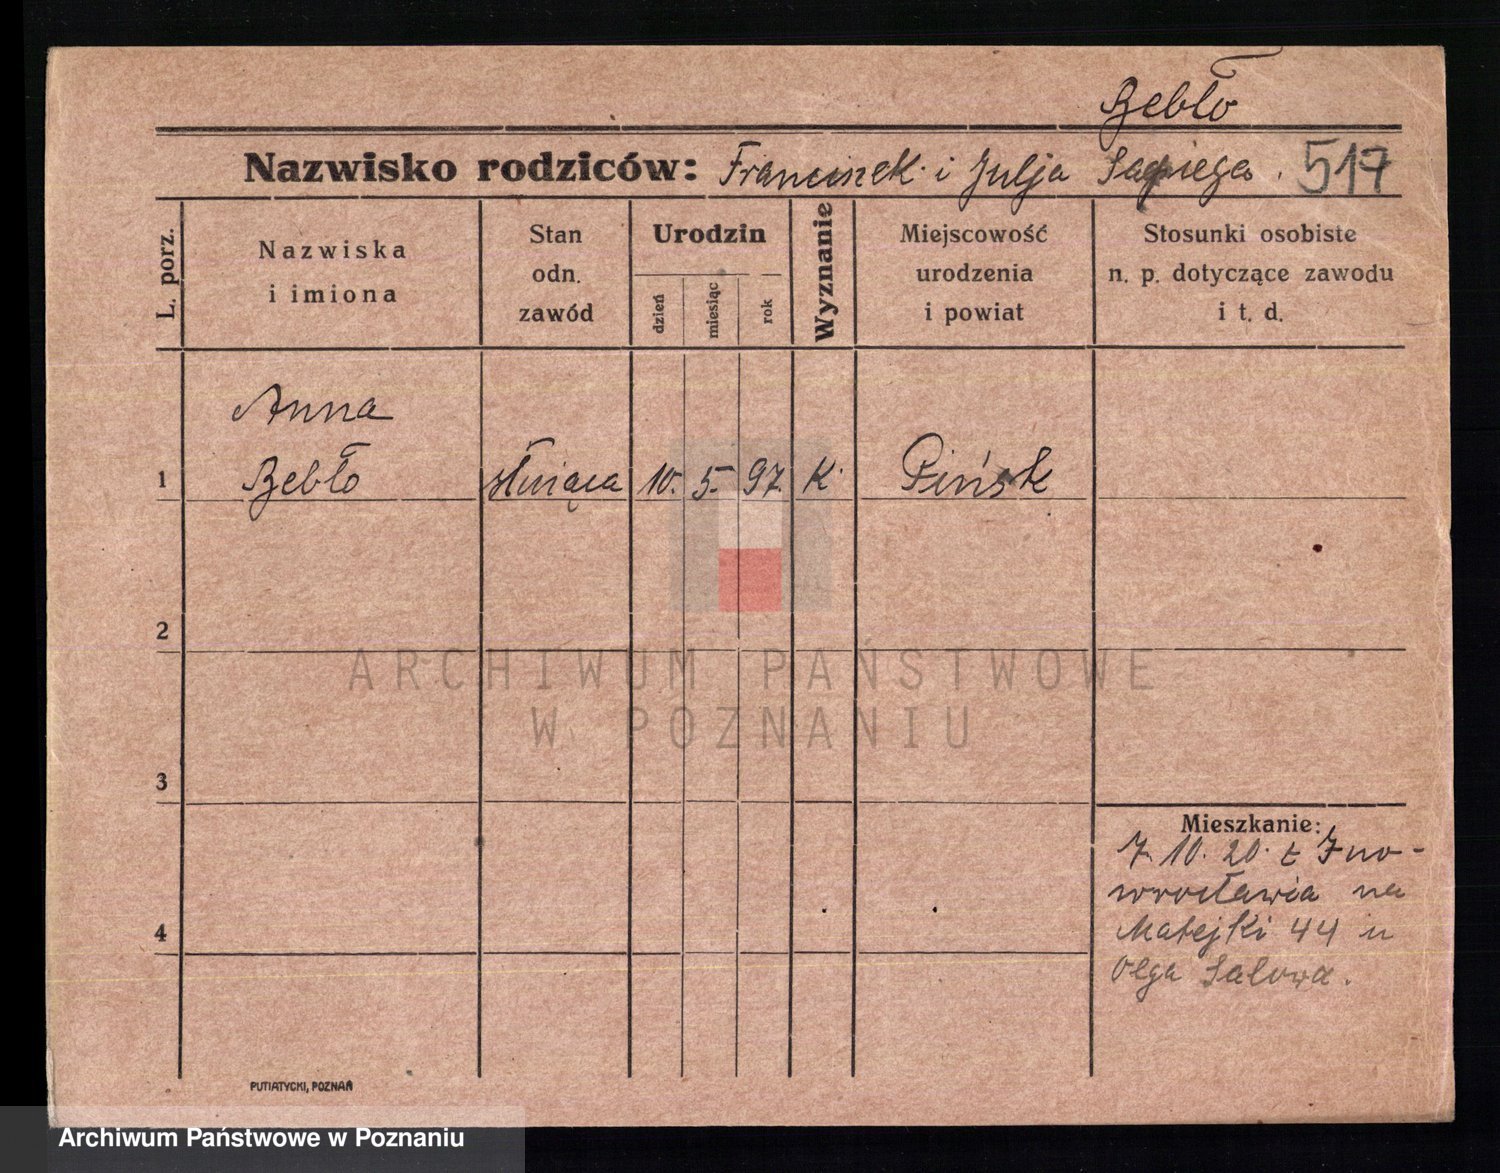 Bebło
Nazwisko rodziców: Franciszek i Julja Sapiega. 517
L. porz.
Nazwiska
i imiona
Stan
odn.
zawód
Urodzin
dzień
miesiąc
rok
Wyznanie
Miejscowość
urodzenia
i powiat
Stosunki osobiste
n. p. dotyczące zawodu
i t. d.
Anna
1 Bebło służąca 10. 5. 97. K. Pińsk
2
ARCHIWUM PAŃSTWOWE
W POZNANIU
3
Mieszkanie:
7. 10. 20. z Ino-
wrocławia na
4 Matejki 44 u
Olga
PUTIATYCKI, POZNAŃ
Archiwum Państwowe w Poznaniu